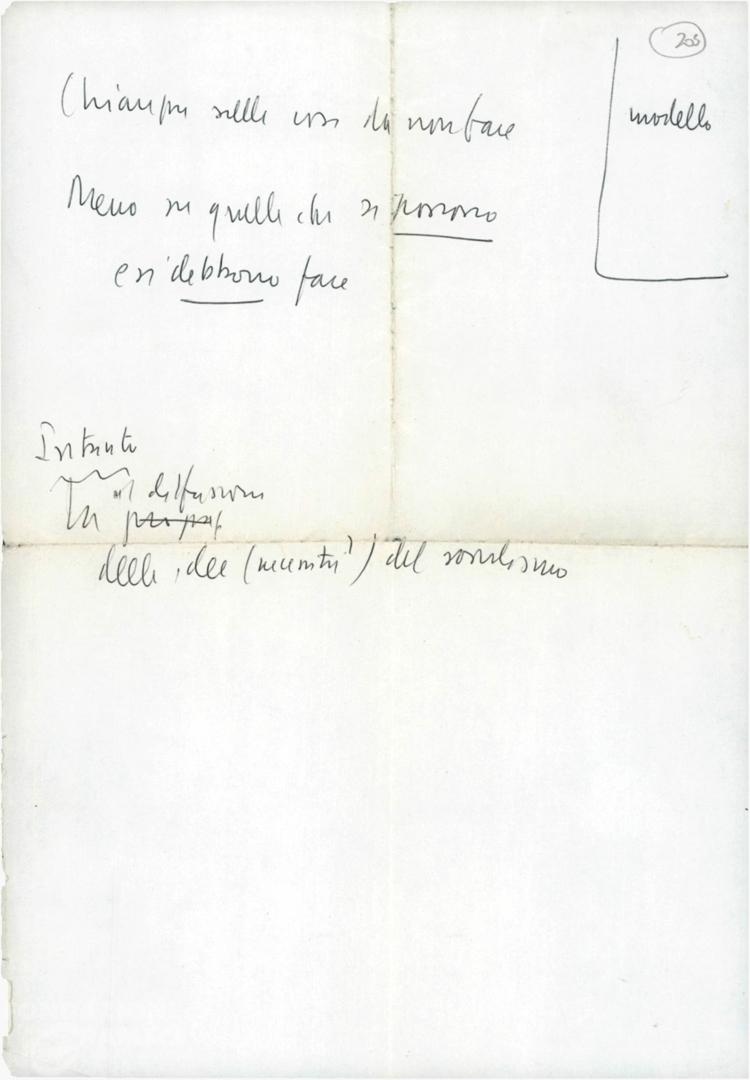 205
modello
sulle cose da non fare
Meno su quelle che si possono
e si debbono fare
Intanto
diffusione
La
delle idee (necessità?) del socialismo